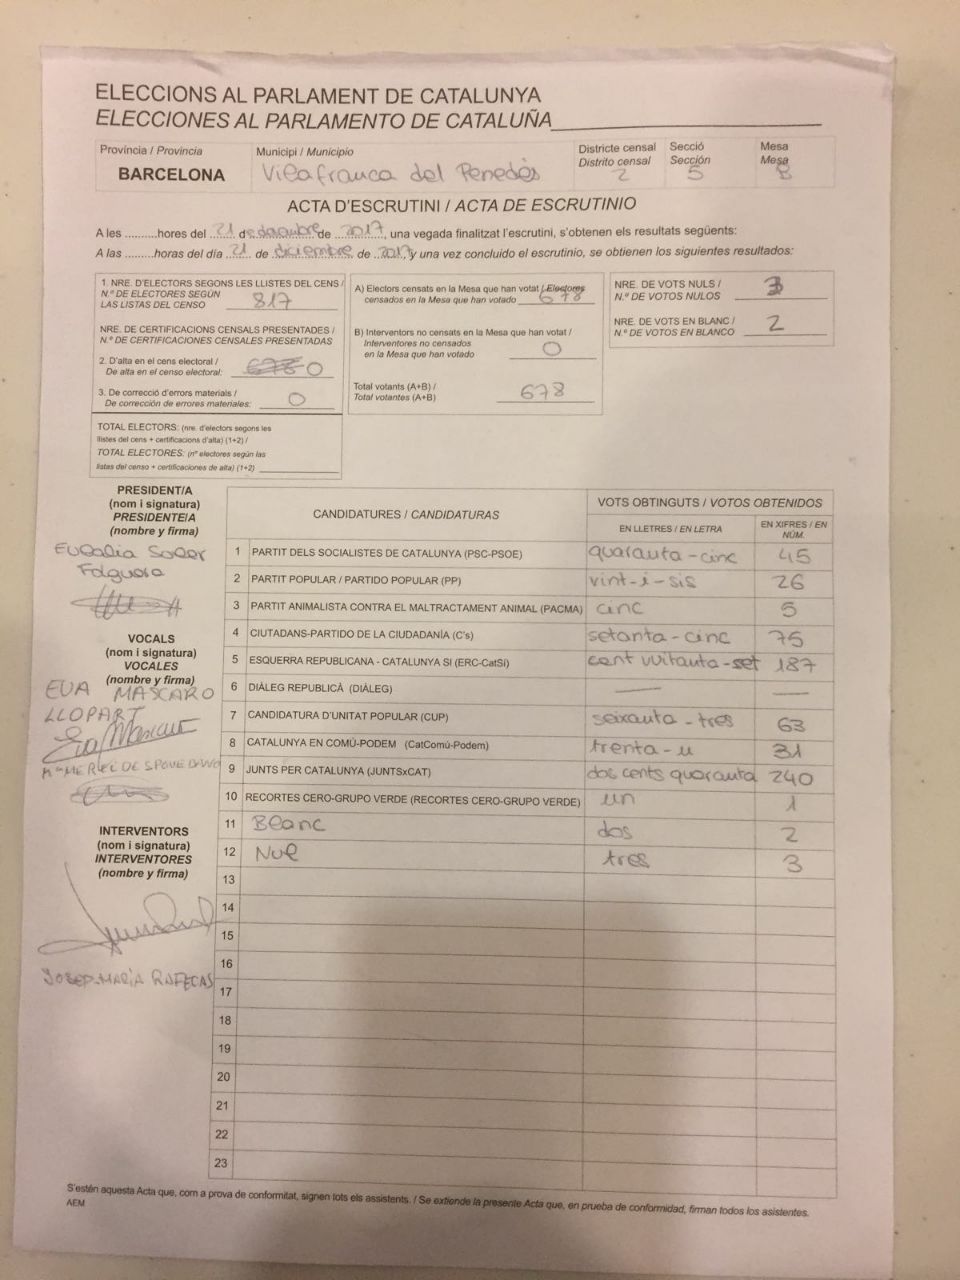 ELECCIONS AL PARLAMENT DE CATALUNYA
ELECCIONES AL PARLAMENTO DE CATALUÑA
Província / Provincia
BARCELONA
Municipi / Municipio
Vilafranca del Penedès
Districte censal
Distrito censal
2
Secció
Sección
5
Mesa
Mesa
B
ACTA D'ESCRUTINI / ACTA DE ESCRUTINIO
A les ..........hores del 21 de desembre de 2017, una vegada finalitzat l'escrutini, s'obtenen els resultats següents:
A las .........horas del día 21 de diciembre de 2017, y una vez concluido el escrutinio, se obtienen los siguientes resultados:
1. NRE. D'ELECTORS SEGONS LES LLISTES DEL CENS /
N.º DE ELECTORES SEGÚN
LAS LISTAS DEL CENSO 817
NRE. DE CERTIFICACIONS CENSALS PRESENTADES /
N.º DE CERTIFICACIONES CENSALES PRESENTADAS
2. D'alta en el cens electoral /
De alta en el censo electoral: 678 0
3. De correcció d'errors materials /
De corrección de errores materiales: 0
TOTAL ELECTORS: (nre. d'electors segons les
llistes del cens + certificacions d'alta) (1+2) /
TOTAL ELECTORES: (nº electores según las
listas del censo + certificaciones de alta) (1+2)
A) Electors censats en la Mesa que han votat / Electores
censados en la Mesa que han votado 678
B) Interventors no censats en la Mesa que han votat /
Interventores no censados
en la Mesa que han votado 0
Total votants (A+B) /
Total votantes (A+B) 678
NRE. DE VOTS NULS /
N.º DE VOTOS NULOS 3
NRE. DE VOTS EN BLANC /
N.º DE VOTOS EN BLANCO 2
PRESIDENT/A
(nom i signatura)
PRESIDENTE/A
(nombre y firma)
Eulalia Soler
Folguera
VOCALS
(nom i signatura)
VOCALES
(nombre y firma)
EVA MASCARO
LLOPART
Eva Mascaró
INTERVENTORS
(nom i signatura)
INTERVENTORES
(nombre y firma)
JOSEP-MARIA RAFECAS
CANDIDATURES / CANDIDATURAS
VOTS OBTINGUTS / VOTOS OBTENIDOS
EN LLETRES / EN LETRA
EN XIFRES / EN NÚM.
1 PARTIT DELS SOCIALISTES DE CATALUNYA (PSC-PSOE) quaranta-cinc 45
2 PARTIT POPULAR / PARTIDO POPULAR (PP) vint-i-sis 26
3 PARTIT ANIMALISTA CONTRA EL MALTRACTAMENT ANIMAL (PACMA) cinc 5
4 CIUTADANS-PARTIDO DE LA CIUDADANÍA (C's) setanta-cinc 75
5 ESQUERRA REPUBLICANA - CATALUNYA SI (ERC-CatSí) cent vuitanta-set 187
6 DIÀLEG REPUBLICÀ (DIÀLEG) — —
7 CANDIDATURA D'UNITAT POPULAR (CUP) seixanta-tres 63
8 CATALUNYA EN COMÚ-PODEM (CatComú-Podem) trenta-u 31
9 JUNTS PER CATALUNYA (JUNTSxCAT) dos cents quaranta 240
10 RECORTES CERO-GRUPO VERDE (RECORTES CERO-GRUPO VERDE) un 1
11 Blanc dos 2
12 Nul tres 3
13
14
15
16
17
18
19
20
21
22
23
S'estén aquesta Acta que, com a prova de conformitat, signen tots els assistents. / Se extiende la presente Acta que, en prueba de conformidad, firman todos los asistentes.
AEM